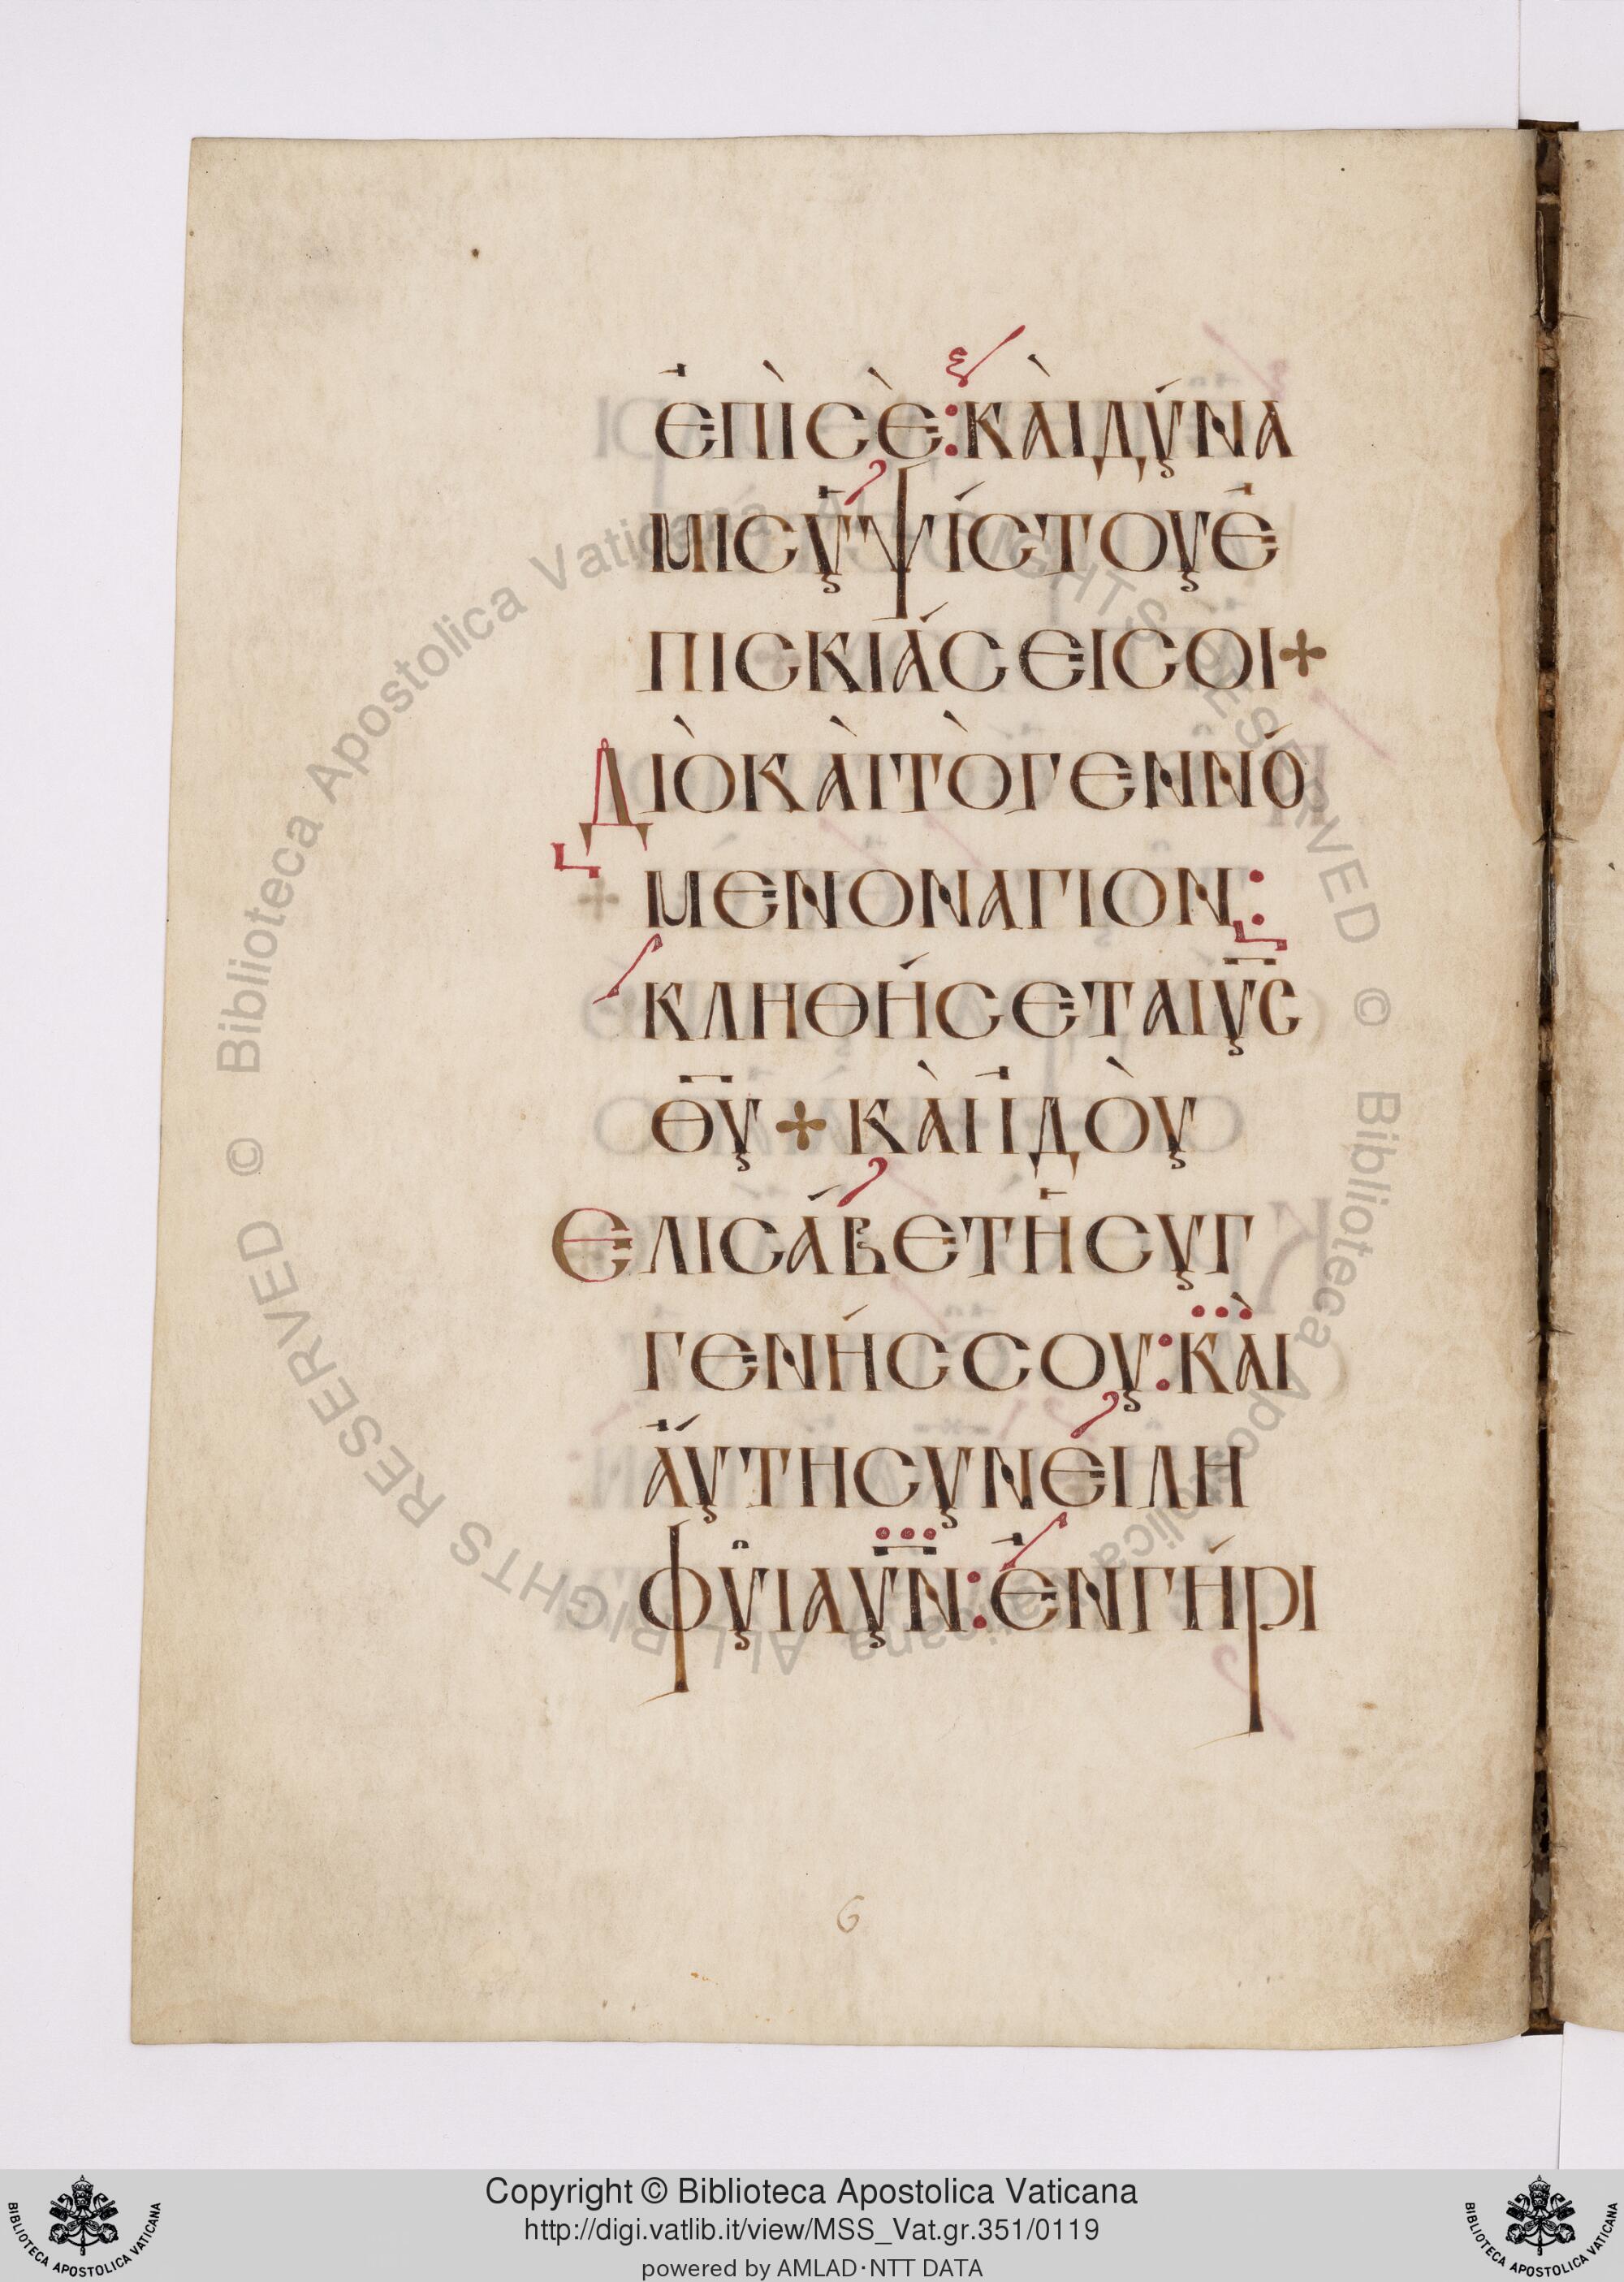 ἐπὶσὲ:κὰιδύνα
μισὑψίστουἐ
πισκιάσεισοι+
Διὸκὰιτὸγεννό
μενοναγιον:
κληθήσεταιυ̅ς̅
θ̅υ̅+κὰιἰδὸυ
Ελισάβετἡσυγ
γενήςσου:κὰι
ἄυτησυνέιλη
φῦιαυ̅ν̅:ἐνγήρι
6
© Biblioteca Apostolica Vaticana ALL RIGHTS RESERVED © Biblioteca Apostolica Vaticana ALL RIGHTS RESERVED
Copyright © Biblioteca Apostolica Vaticana
http://digi.vatlib.it/view/MSS_Vat.gr.351/0119
powered by AMLAD·NTT DATA
BIBLIOTECA APOSTOLICA VATICANA
BIBLIOTECA APOSTOLICA VATICANA